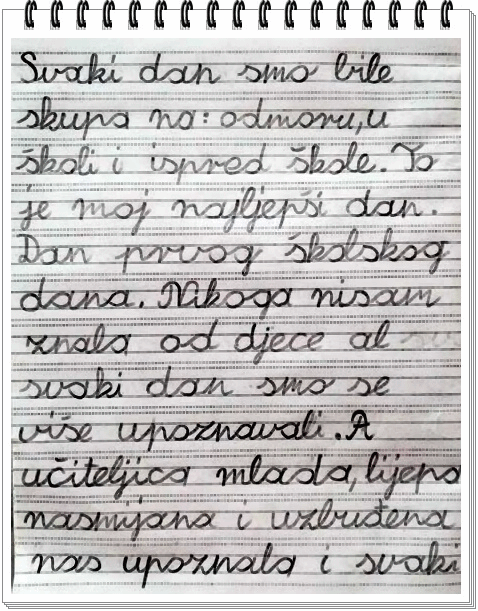 Svaki dan smo bile
skupa na: odmoru, u
školi i ispred škole. To
je moj najljepši dan.
Dan prvog školskog
dana. Nikoga nisam
znala od djece al
svaki dan smo se
više upoznavali. A
učiteljica mlada, lijepa
nasmijana i uzbuđena
nas upoznala i svaki